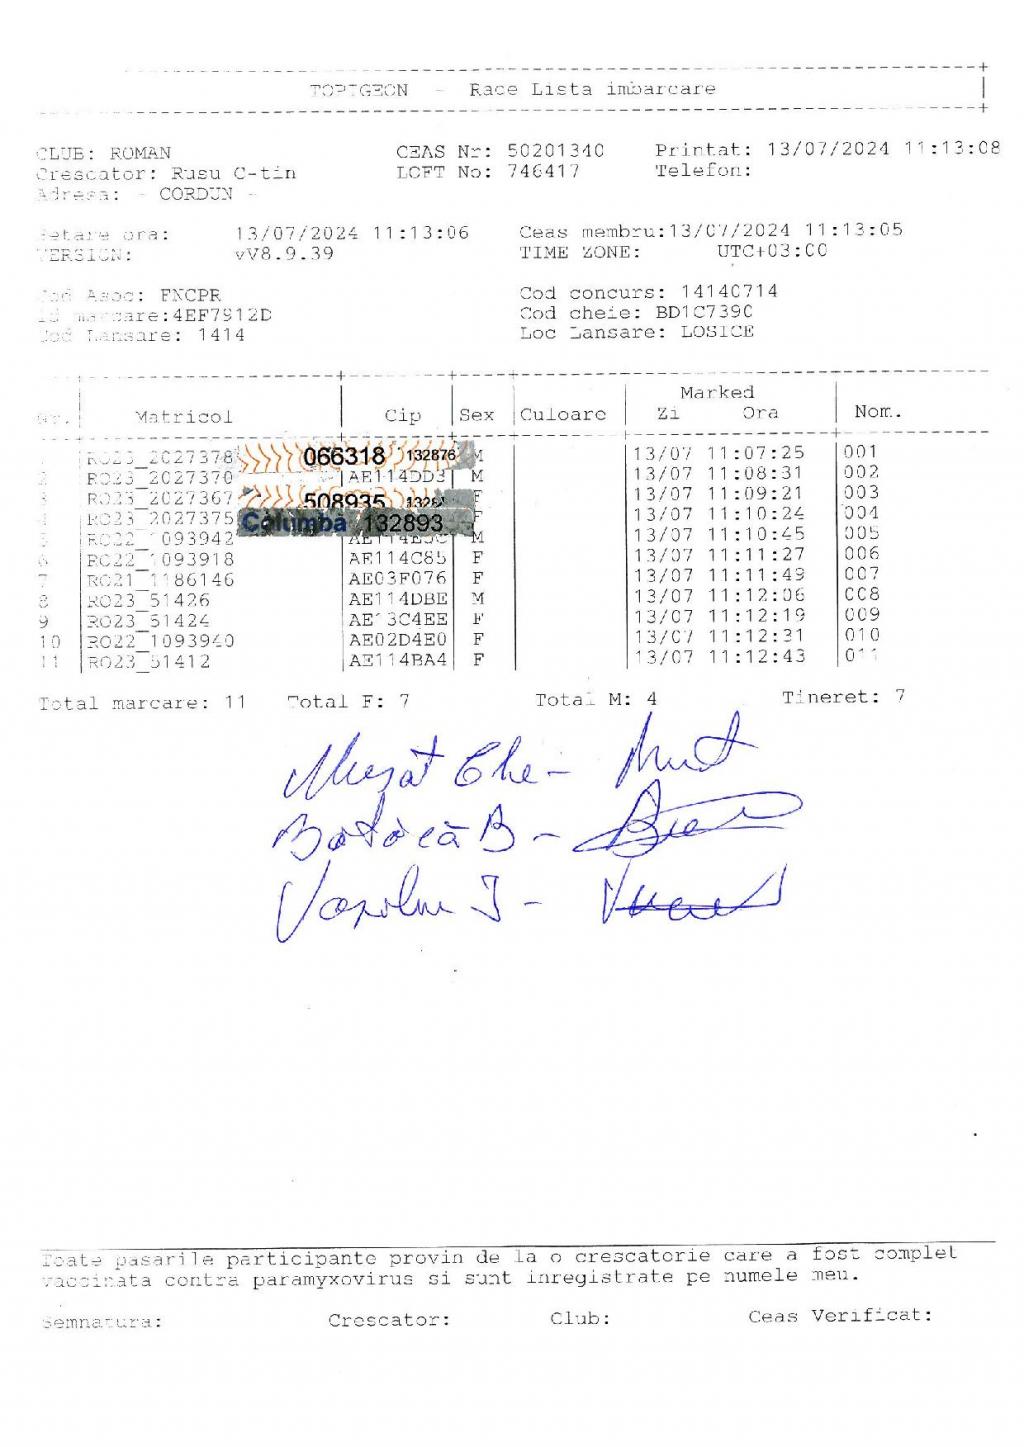 TOPIGEON - Race Lista imbarcare
CLUB: ROMAN CEAS Nr: 50201340 Printat: 13/07/2024 11:13:08
Crescator: Rusu C-tin LOFT No: 746417 Telefon:
Adresa: - CORDUN -
Setare ora: 13/07/2024 11:13:06 Ceas membru:13/07/2024 11:13:05
VERSION: vV8.9.39 TIME ZONE: UTC+03:00
Cod Asoc: FNCPR Cod concurs: 14140714
Id marcare:4EF7912D Cod cheie: BD1C7390
Cod Lansare: 1414 Loc Lansare: LOSICE
Marked
Nr. Matricol Cip Sex Culoare Zi Ora Nom.
1 RO23_2027378 066318 132876 M 13/07 11:07:25 001
2 RO23_2027370 AE114DD3 M 13/07 11:08:31 002
3 RO23_2027367 508935 F 13/07 11:09:21 003
4 RO23_2027375 Columba 132893 F 13/07 11:10:24 004
5 RO22_1093942 M 13/07 11:10:45 005
6 RO22_1093918 AE114C85 F 13/07 11:11:27 006
7 RO21_1186146 AE03F076 F 13/07 11:11:49 007
8 RO23_51426 AE114DBE M 13/07 11:12:06 008
9 RO23_51424 AE13C4EE F 13/07 11:12:19 009
10 RO22_1093940 AE02D4E0 F 13/07 11:12:31 010
11 RO23_51412 AE114BA4 F 13/07 11:12:43 011
Total marcare: 11 Total F: 7 Total M: 4 Tineret: 7
Toate pasarile participante provin de la o crescatorie care a fost complet
vaccinata contra paramyxovirus si sunt inregistrate pe numele meu.
Semnatura: Crescator: Club: Ceas Verificat: